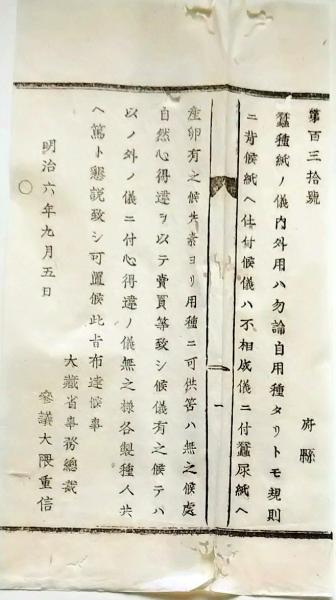 第百三拾號
府縣
蠶種紙ノ儀内外用ハ勿論自用種タリトモ規則
ニ背候紙ヘ仕付候儀ハ不相成儀ニ付蠶尿紙ヘ
一
産卵有之候共素ヨリ用種ニ可供筈ハ無之候處
自然心得違ヲ以テ賣買等致シ候儀有之候テハ
以ノ外ノ儀ニ付心得違ノ儀無之様各製種人共
ヘ篤ト懇説致シ可置候此旨布達候事
大藏省事務總裁
明治六年九月五日
參議大隈重信